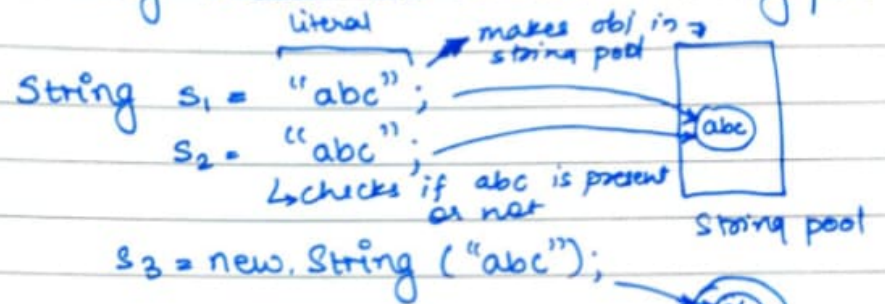 literal
makes obj in
string pool
String s1 = "abc";
abc
s2 = "abc";
↳checks if abc is present
or not
String pool
s3 = new. String ("abc");